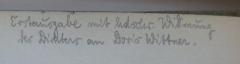 Erstausgabe mit hdschr. Widmung
des Dichters an Doris Wittner.